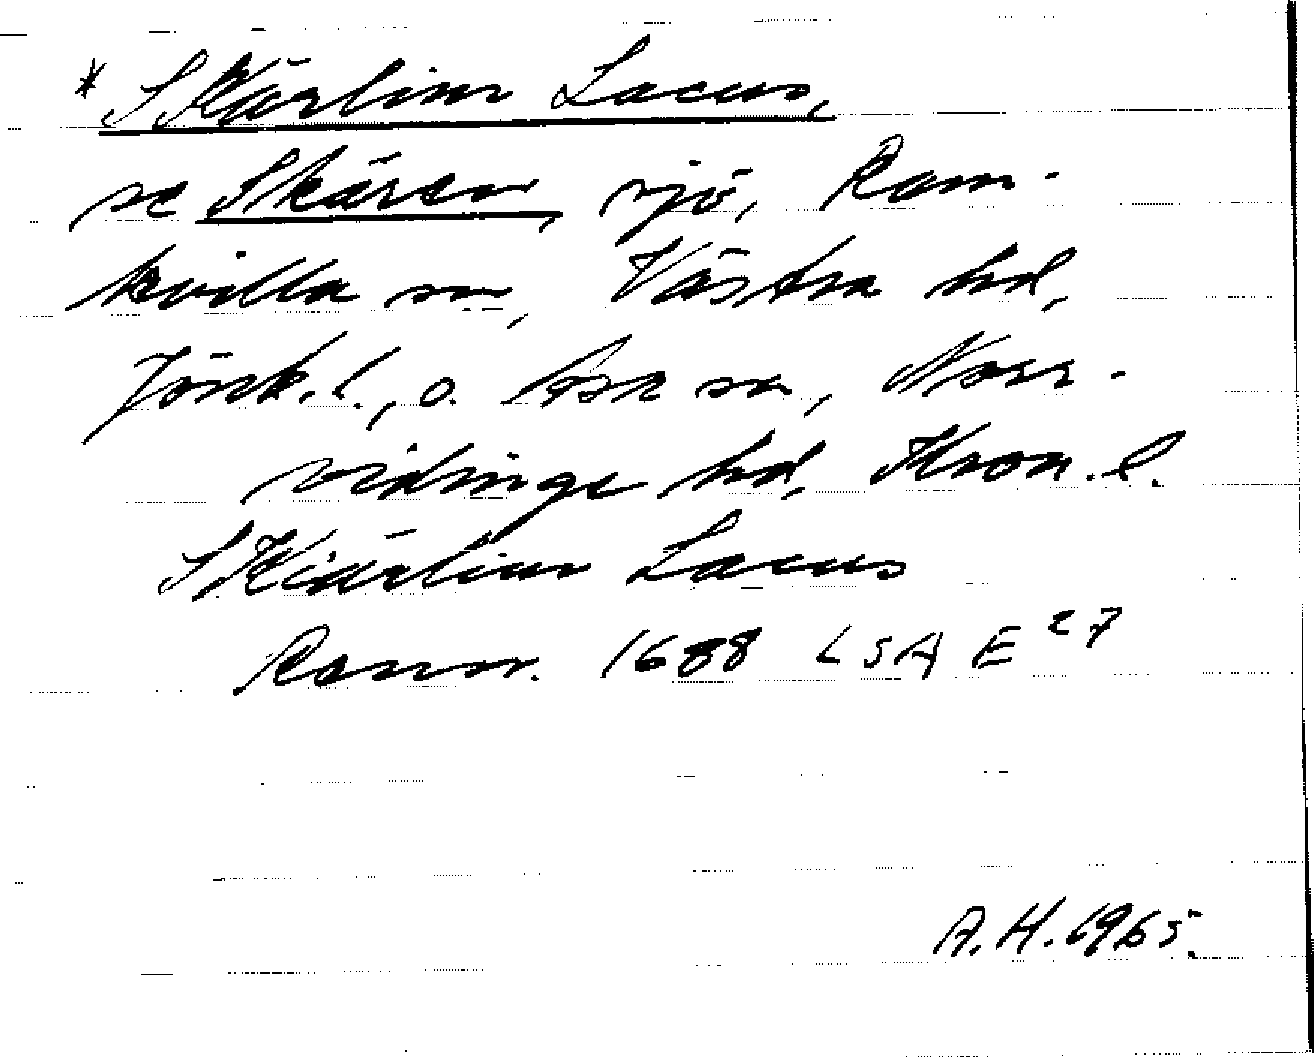 * Skärlim Lacus,
se Skären, sjö, Ram-
kvilla sn, Västra hd,
Jönk.l., o. Asa sn, Norr-
vidinge hd, Kron.l.
Skiärlim Lacus
Rann. 1688 LSA E 27
A.H. 1965.